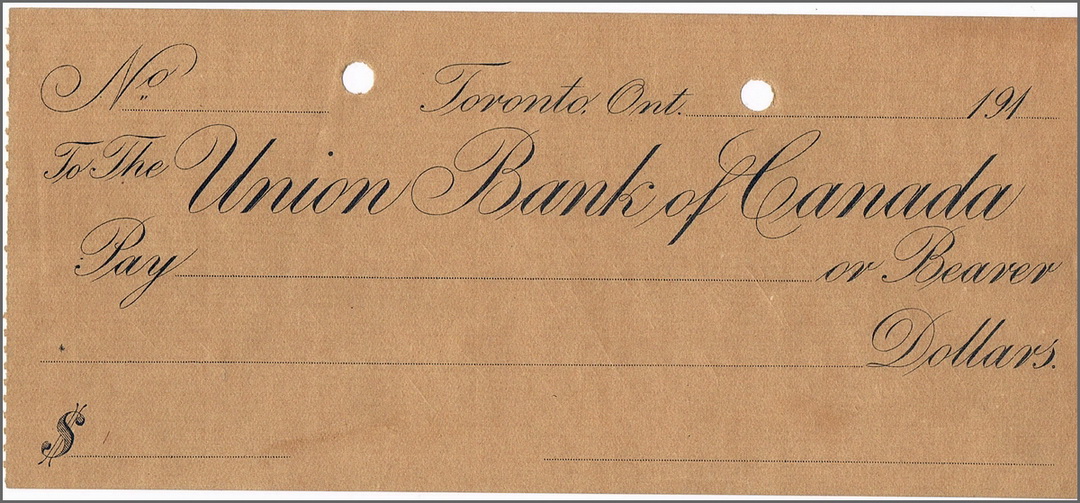 No. Toronto, Ont. 191
To The Union Bank of Canada
Pay or Bearer
Dollars.
$